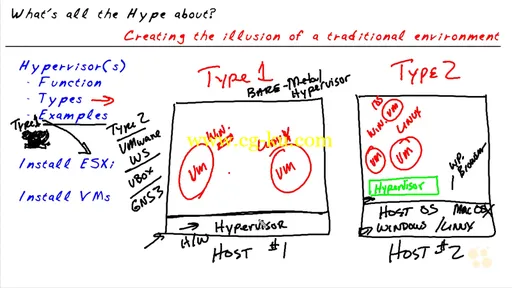 What's all the Hype about?
Creating the illusion of a traditional environment
Hypervisor(s)
· Function
· Types
· Examples
Install ESXi
Install VMs
Type1
Type 2
VMware
WS
VBox
GNS3
Type 1
BARE-Metal
Hypervisor
WIN.
LINUX
VM
VM
Hypervisor
H/W
HOST #1
Type 2
VM
WIN.
LINUX
VM
VM
Hypervisor
WP.
Browser
HOST OS
MAC OSX
WINDOWS /LINUX
HOST #2
www.cg-ku.com